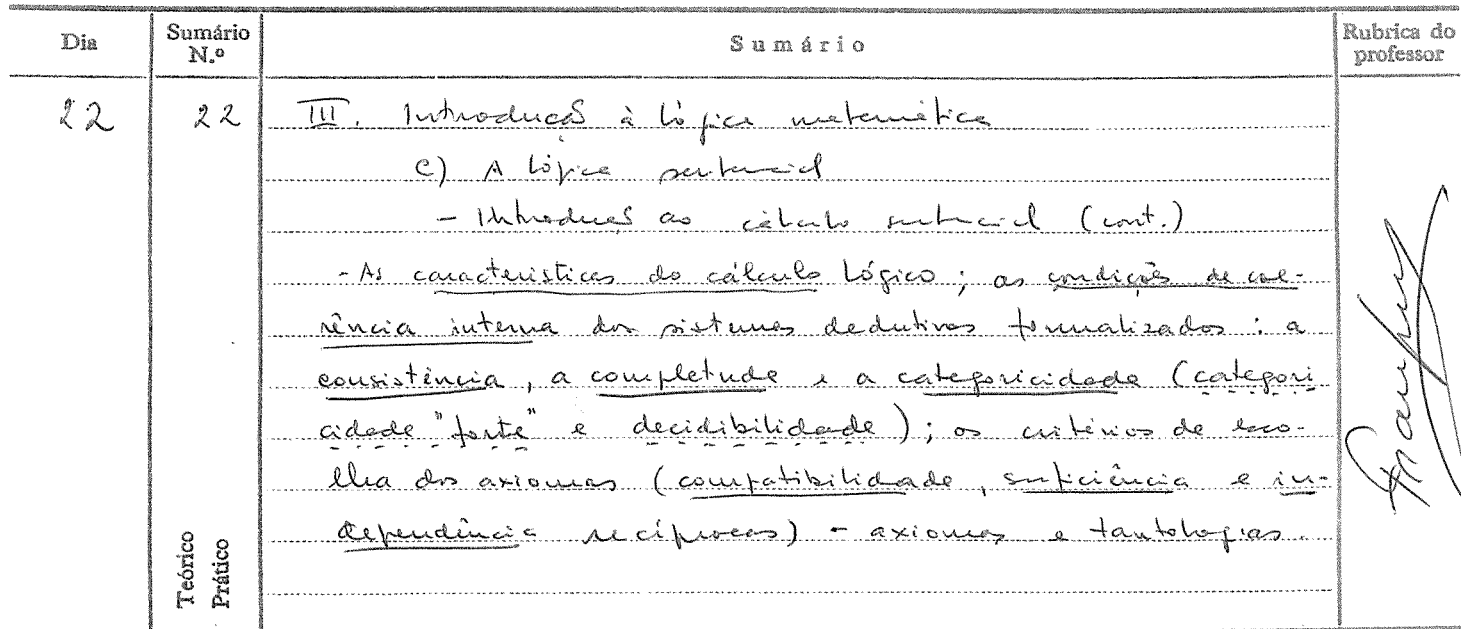 Dia Sumário N.º Sumário Rubrica do professor
22 22 III. Introdução à lógica matemática
c) A lógica sentencial
- Introdução ao cálculo sentencial (cont.)
- As características do cálculo lógico; as condições de coe-
rência interna dos sistemas dedutivos formalizados: a
consistência, a completude e a categoricidade (categori
cidade "forte" e decidibilidade); os critérios de esco-
lha dos axiomas (compatibilidade, suficiência e in-
dependência recíprocas) - axiomas e tautologias.
Teórico
Prático